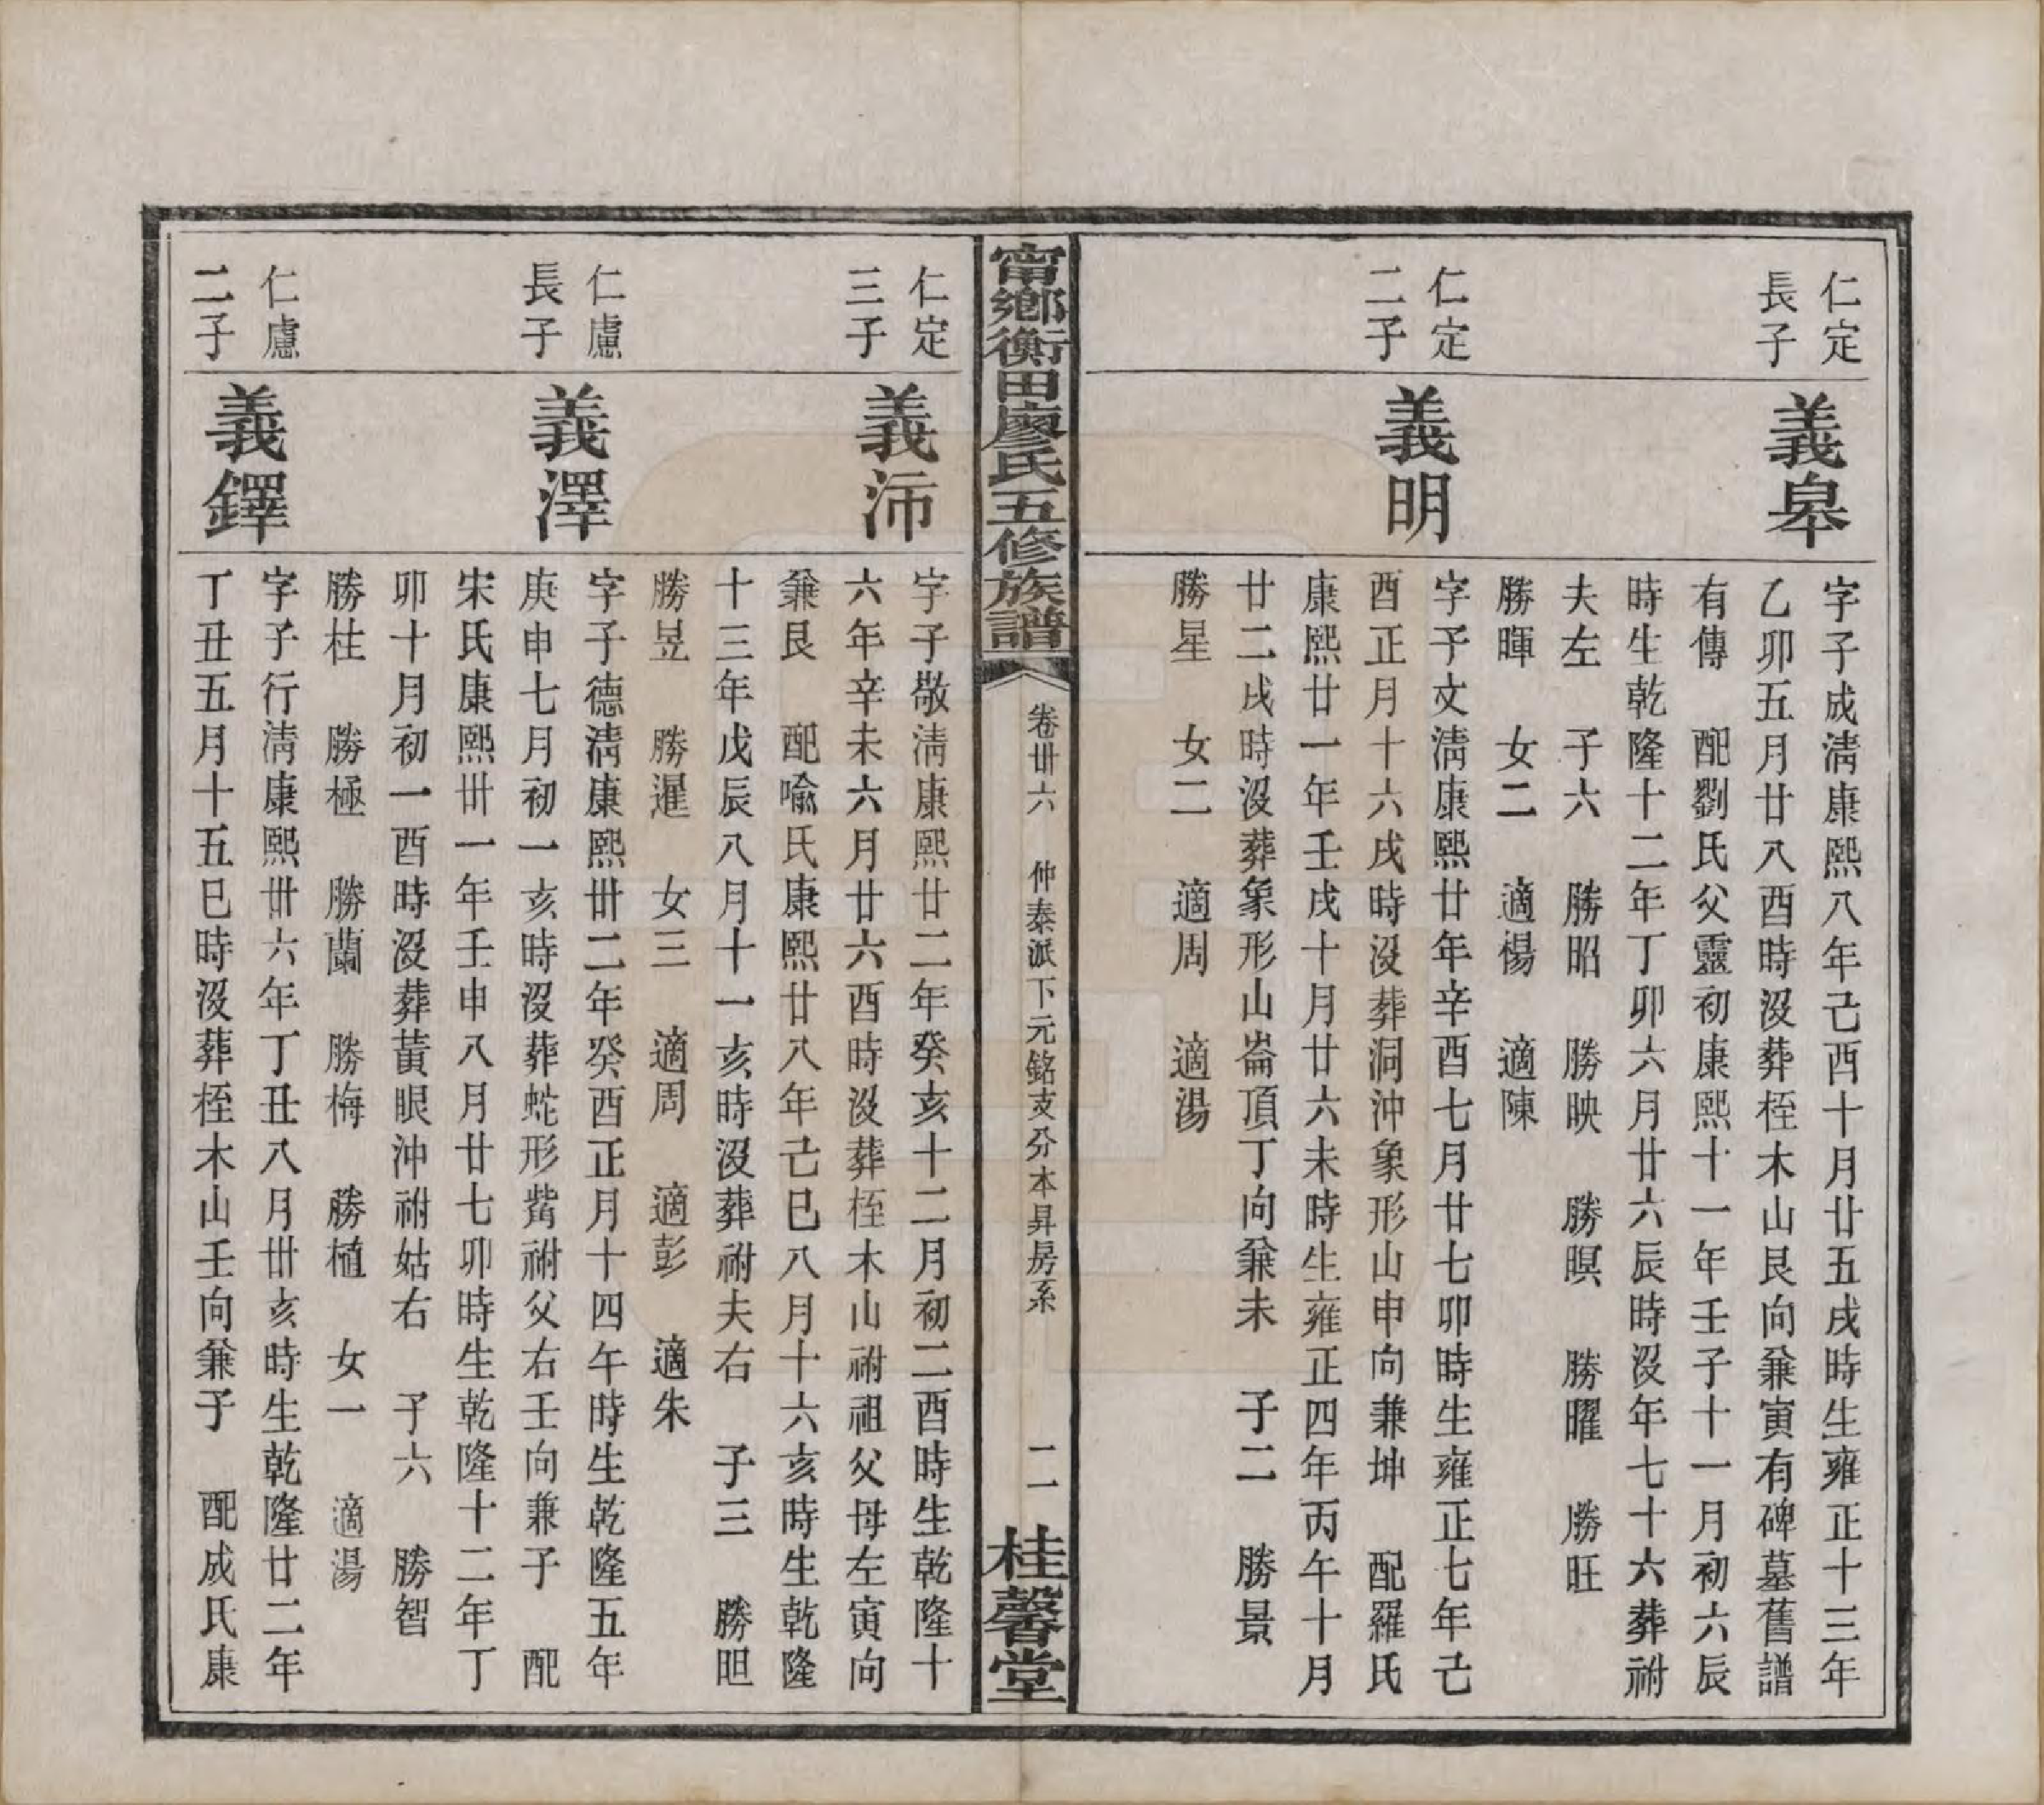 仁定
長子
義皋
字子成淸康熙八年己酉十月廿五戌時生雍正十三年
乙卯五月廿八酉時沒葬桎木山艮向兼寅有碑墓舊譜
有傳　配劉氏父靈初康熙十一年壬子十一月初六辰
時生乾隆十二年丁卯六月廿六辰時沒年七十六葬祔
夫左　子六　勝昭　勝映　勝暝　勝曜　勝旺
勝暉　女二　適楊　適陳
仁定
二子
義明
字子文淸康熙廿年辛酉七月廿七卯時生雍正七年己
酉正月十六戌時沒葬洞沖象形山申向兼坤　配羅氏
康熙廿一年壬戌十月廿六未時生雍正四年丙午十月
廿二戌時沒葬象形山崙頂丁向兼未　子二　勝景
勝星　女二　適周　適湯
甯鄉衡田廖氏五修族譜
卷卅六　仲泰派下元銘支分本昇房系
二
桂馨堂
仁定
三子
義沛
字子敬淸康熙廿二年癸亥十二月初二酉時生乾隆十
六年辛未六月廿六酉時沒葬桎木山祔祖父母左寅向
兼艮　配喻氏康熙廿八年己巳八月十六亥時生乾隆
十三年戊辰八月十一亥時沒葬祔夫右　子三　勝旦
勝昱　勝暹　女三　適周　適彭　適朱
仁慮
長子
義澤
字子德淸康熙卅二年癸酉正月十四午時生乾隆五年
庚申七月初一亥時沒葬蛇形觜祔父右壬向兼子　配
宋氏康熙卅一年壬申八月廿七卯時生乾隆十二年丁
卯十月初一酉時沒葬黃眼沖祔姑右　子六　勝智
勝柱　勝極　勝蘭　勝梅　勝植　女一　適湯
仁慮
二子
義鐸
字子行淸康熙卅六年丁丑八月卅亥時生乾隆廿二年
丁丑五月十五巳時沒葬桎木山壬向兼子　配成氏康